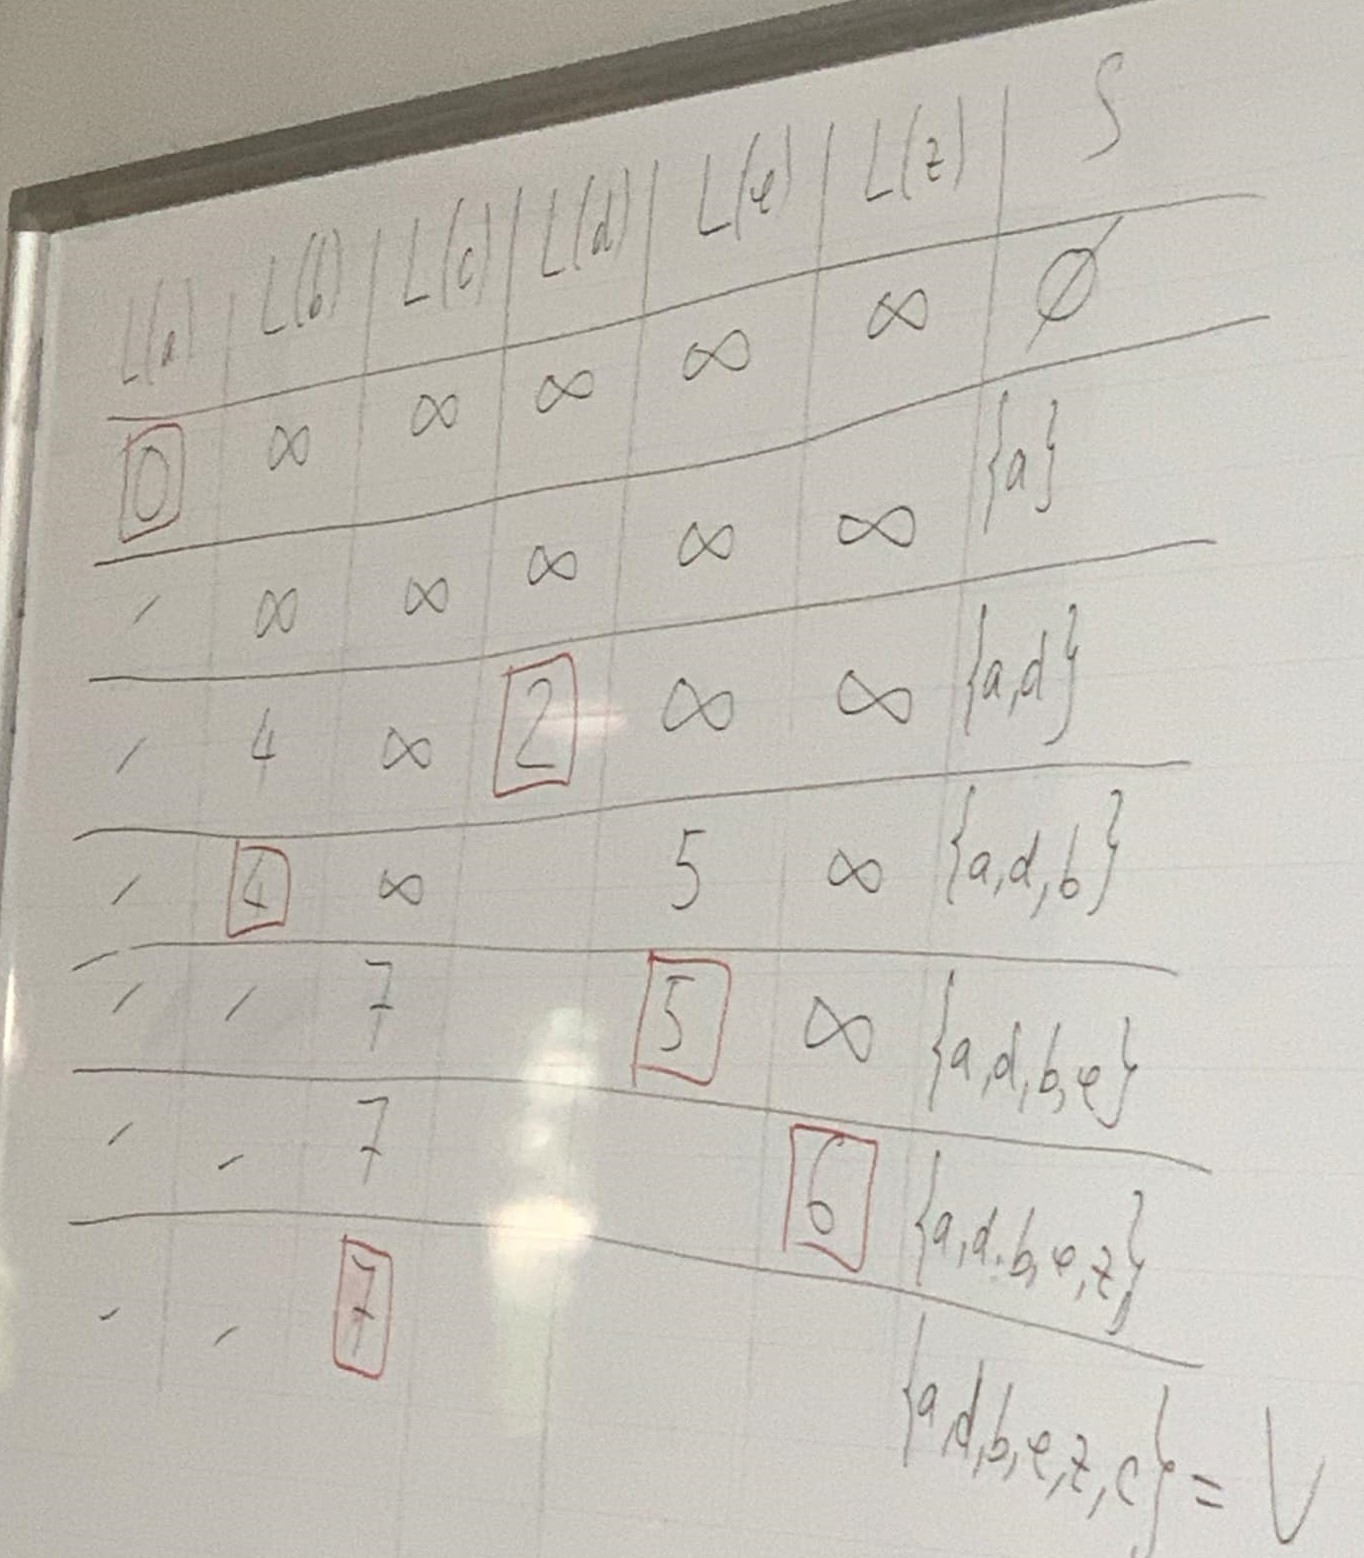 L(a) L(b) L(c) L(d) L(e) L(z) S
0 ∞ ∞ ∞ ∞ ∞ ∅
- ∞ ∞ ∞ ∞ ∞ {a}
- 4 ∞ 2 ∞ ∞ {a,d}
- 4 ∞ 5 ∞ {a,d,b}
- - 7 5 ∞ {a,d,b,e}
- - 7 6 {a,d,b,e,z}
- - 7 {a,d,b,e,z,c} = V